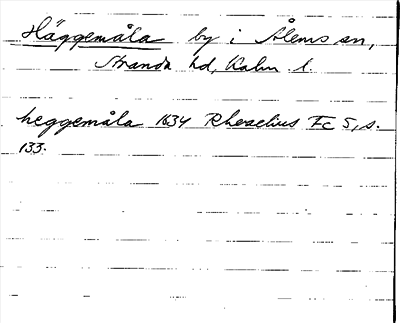 Häggemåla by i Ålems sn,
Stranda hd, Kalm l.
heggemåla 1634 Rhezelius Fc 5, s.
133.